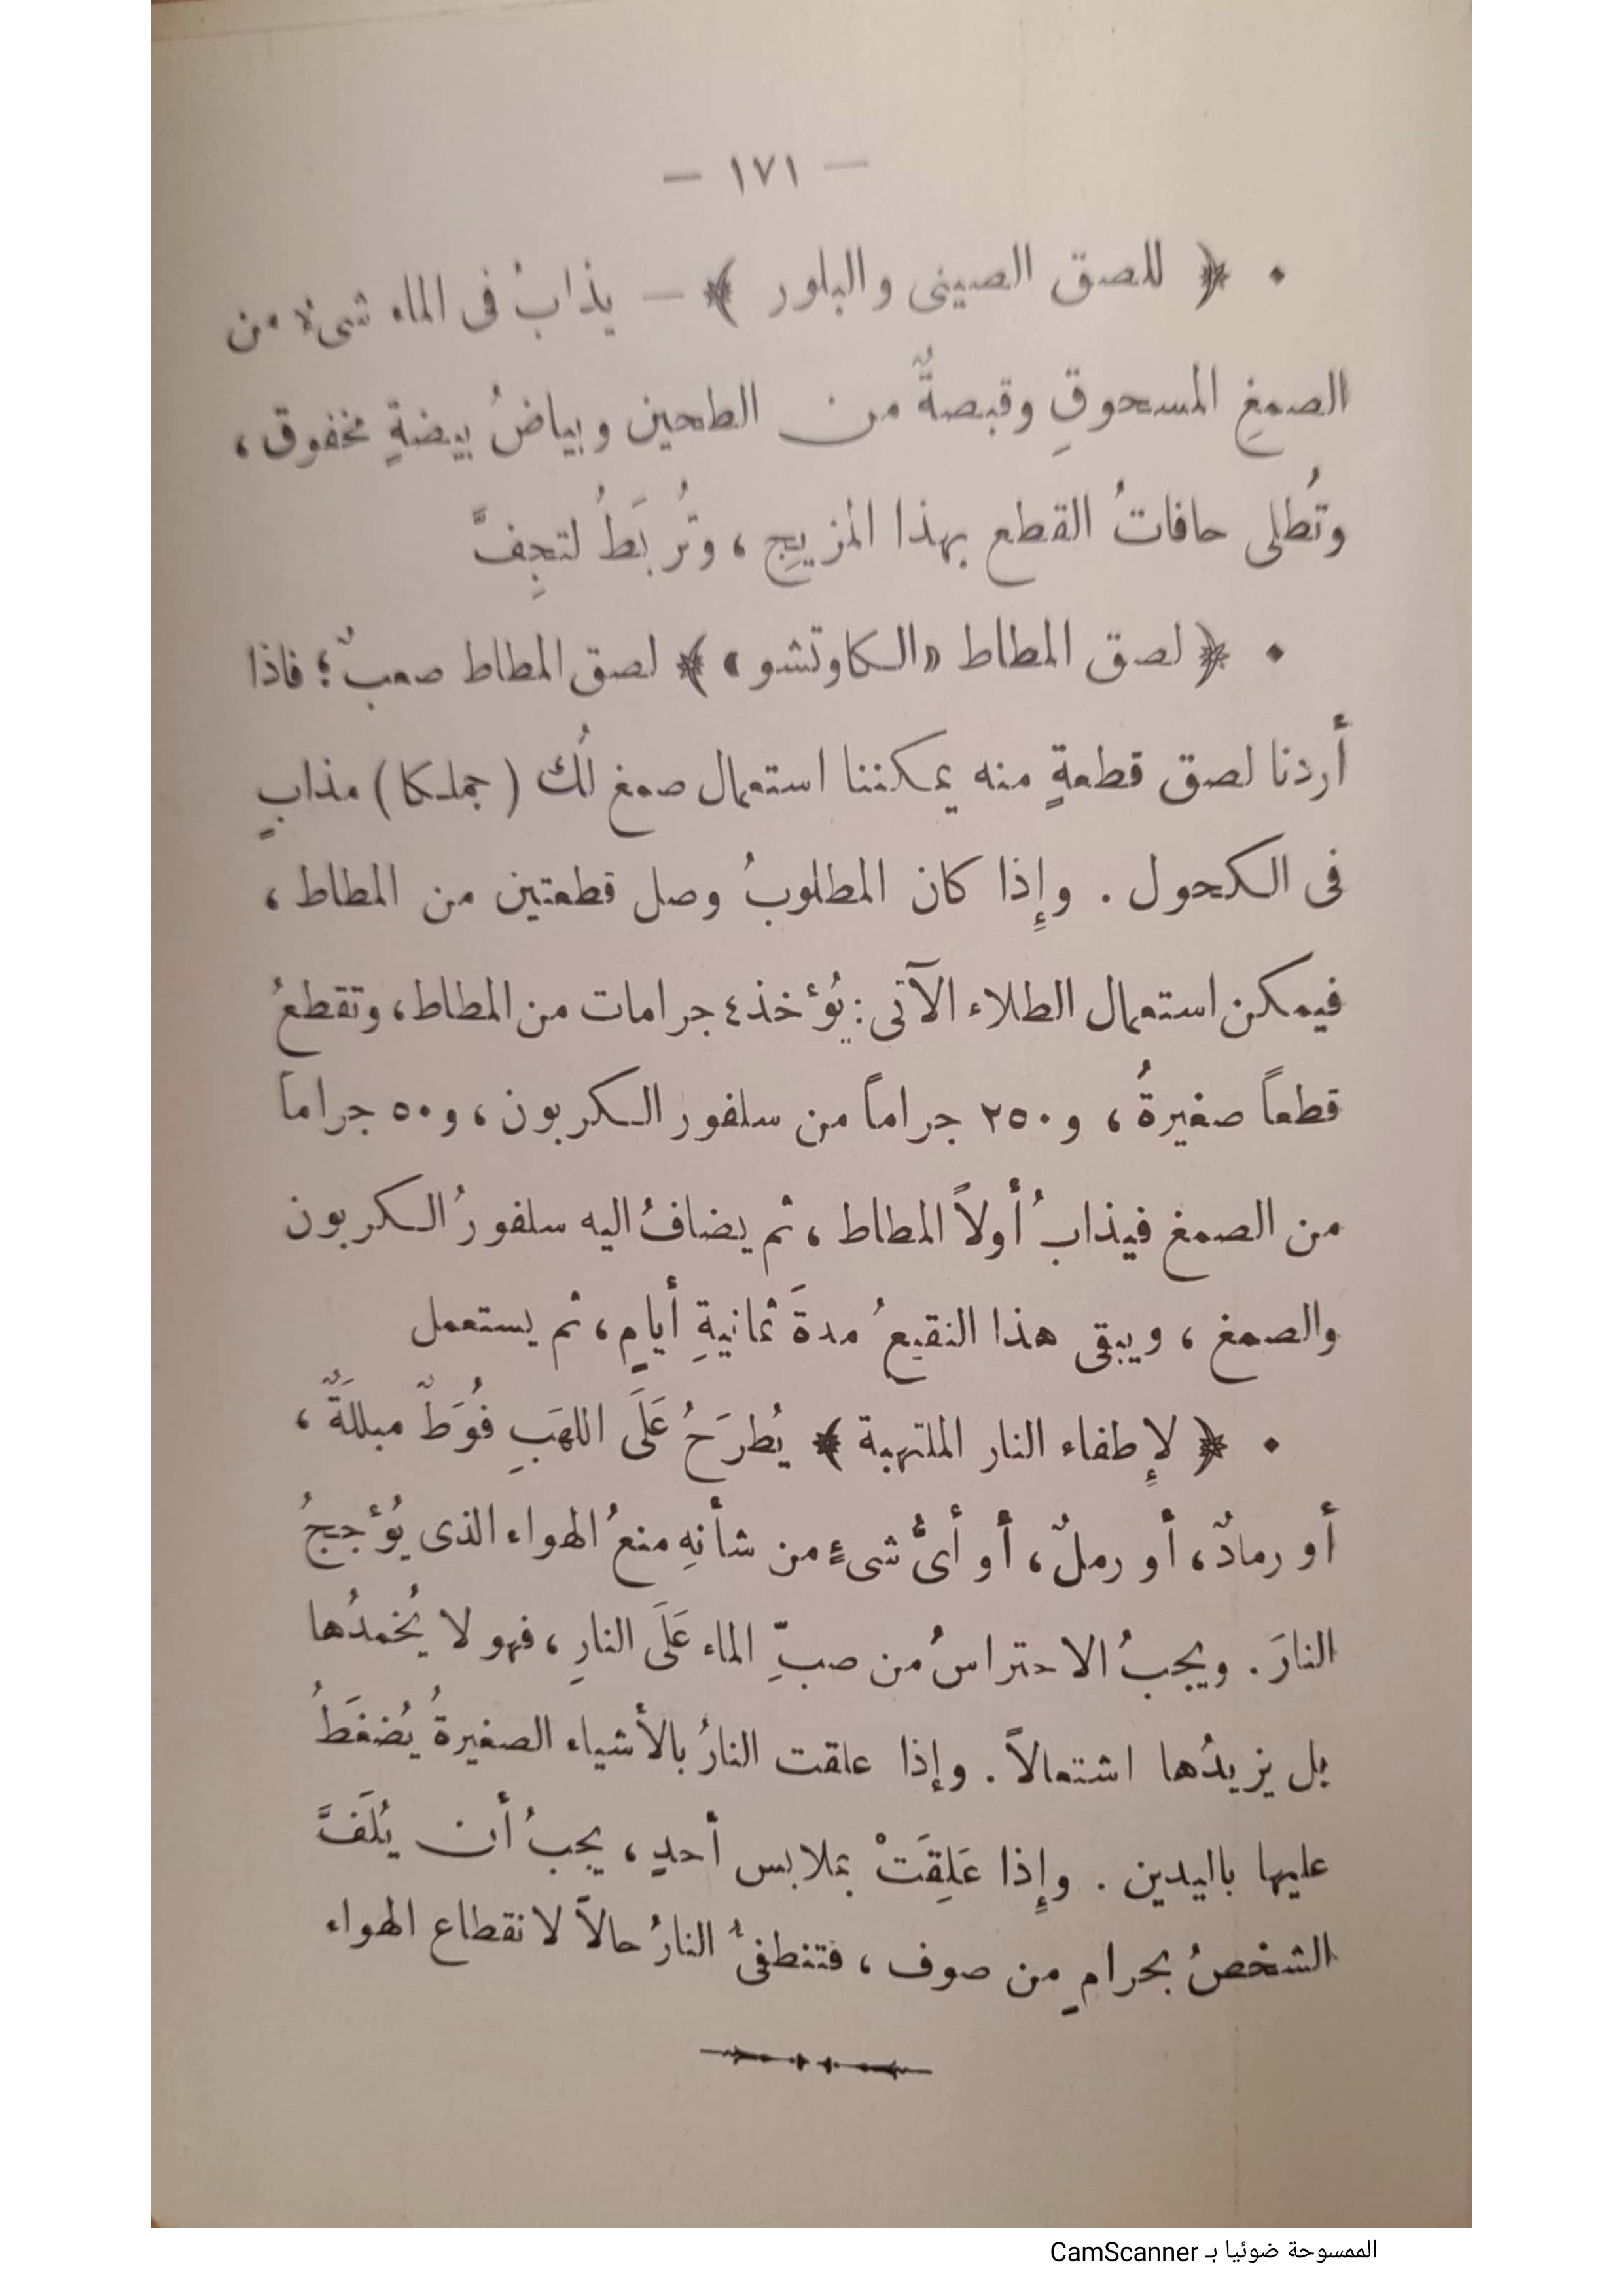 — ١٧١ —
• ﴿ للصق الصينى والبلور ﴾ — يذابُ فى الماء شىءٌ من
الصمغِ المسحوقِ وقبصةٌ من الطحين وبياضُ بيضةٍ مخفوق ،
وتُطلى حافاتُ القطع بهذا المزيجِ ، وتُربَطُ لتجِفَّ
• ﴿ لصق المطاط «الكاوتشو» ﴾ لصق المطاط صعبٌ ؛ فاذا
أردنا لصق قطعةٍ منه يمكننا استعمال صمغ لُك ( جملكا ) مذابٍ
فى الكحول . وإِذا كان المطلوبُ وصل قطعتين من المطاط ،
فيمكن استعمال الطلاء الآتى : يُؤخذ ٤ جرامات من المطاط ، وتقطعُ
قطعاً صغيرةُ ، و ٢٥٠ جراماً من سلفور الكربون ، و ٥٠ جراماً
من الصمغ فيذابُ أولاً المطاط ، ثم يضافُ اليه سلفورُ الكربون
والصمغ ، ويبقى هذا النقيعُ مدةَ ثمانيةِ أيامٍ ، ثم يستعمل
• ﴿ لإِطفاء النار الملتهبة ﴾ يُطرَحُ عَلَى اللهَبِ فُوَطٌ مبللَةٌ ،
أو رمادٌ ، أو رملٌ ، أو أىُّ شىءٍ من شأنهِ منعُ الهواء الذى يُؤججُ
النارَ . ويجبُ الاحتراسُ من صبِّ الماء عَلَى النارِ ، فهو لا يُخمدُها
بل يزيدُها اشتعالاً . وإذا علقت النارُ بالأشياء الصغيرةُ يُضغَطُ
عليها باليدين . وإِذا عَلِقَتْ بملابس أحدٍ ، يجبُ أن يُلَفَّ
الشخصُ بحرامٍ من صوف ، فتنطفىُّ النارُ حالاً لانقطاع الهواء
الممسوحة ضوئيا بـ CamScanner